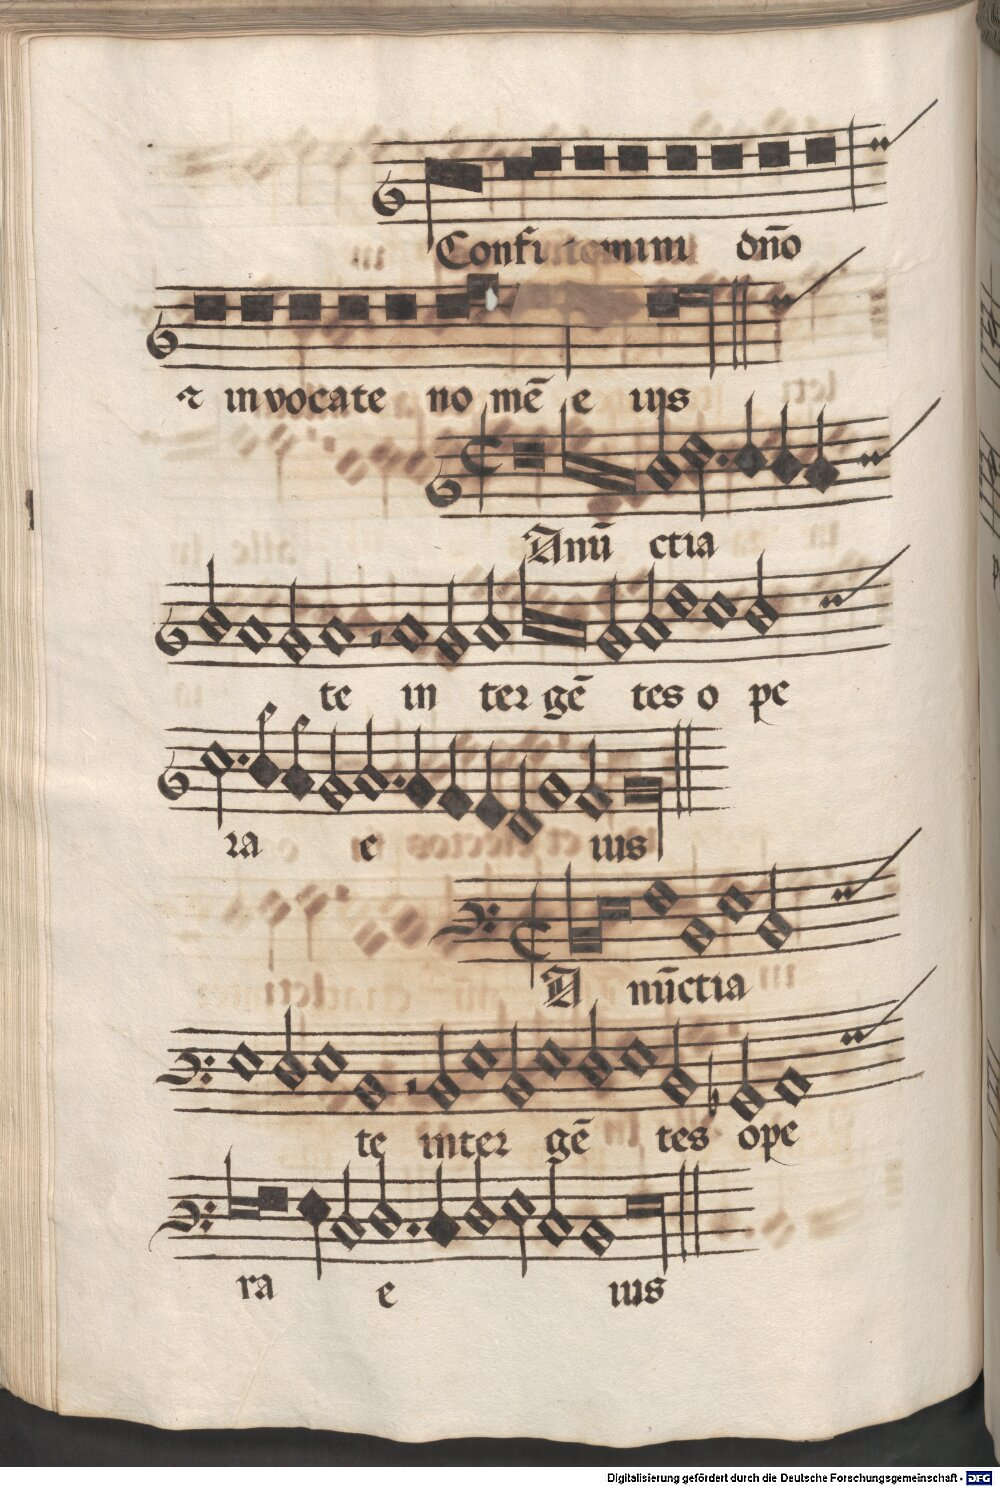 Confitemini dn̄o
⁊ invocate no mē e ius
Anū ctia
te in ter gē tes o pe
ra e ius
A nūctia
te inter gē tes ope
ra e ius
Digitalisierung gefördert durch die Deutsche Forschungsgemeinschaft - DFG